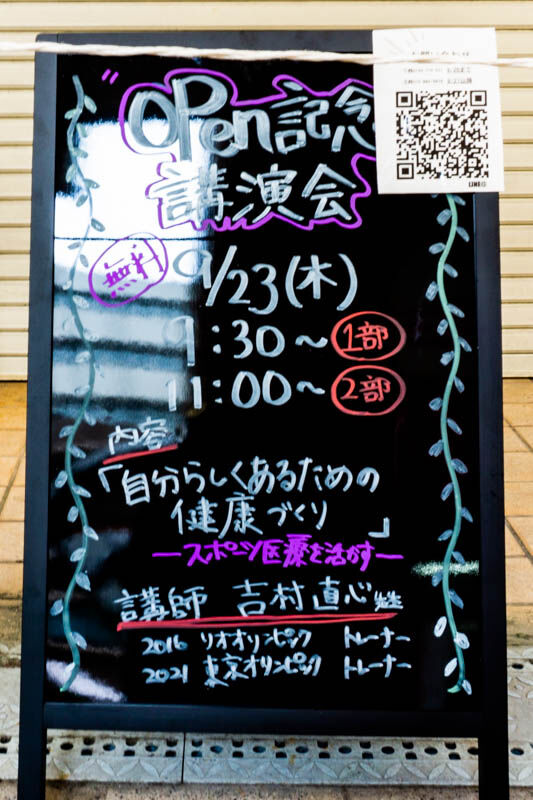 "Open記念
講演会
無料
9/23(木)
9:30〜 1部
11:00〜 2部
内容
「自分らしくあるための
健康づくり」
―スポーツ医療を活かす―
講師 吉村直心先生
2016 リオオリンピック トレーナー
2021 東京オリンピック トレーナー
LINE